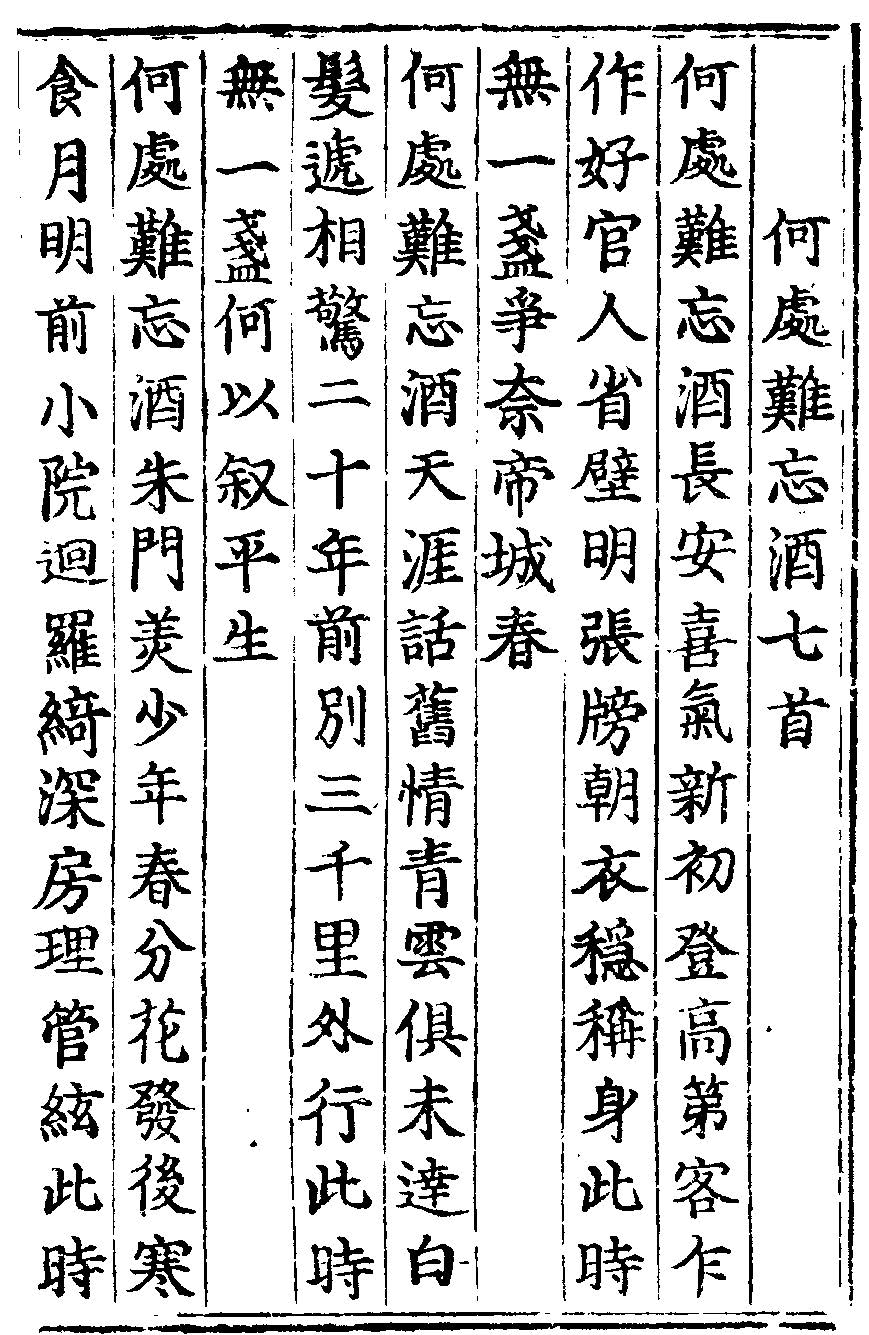 何處難忘酒七首
何處難忘酒長安喜氣新初登高第客乍
作好官人省壁明張牓朝衣穩稱身此時
無一盞爭奈帝城春
何處難忘酒天涯話舊情青雲俱未達白
髮遞相驚二十年前別三千里外行此時
無一盞何以叙平生
何處難忘酒朱門羙少年春分花發後寒
食月明前小院迴羅綺深房理管絃此時